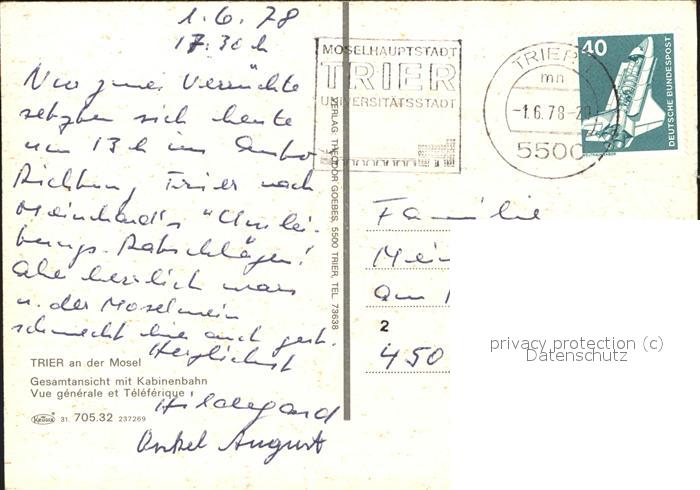 1.6.78
17.30 h
Nur zwei Verrückte
setzten sich heute
um 13 h ins Auto
Richtung Trier nach
Meinhard's "Umlei-
tungs-Ratschlägen!
Aber herrlich wars
u. der Moselwein
schmeckt hier auch gut.
Herzlichst
Hildegard
Onkel August
TRIER an der Mosel
Gesamtansicht mit Kabinenbahn
Vue générale et Téléférique
Krüger 31. 705.32 237269
VERLAG THEODOR GOEBES, 5500 TRIER, TEL. 73638
MOSELHAUPTSTADT
TRIER
UNIVERSITÄTSSTADT
TRIER
mn
-1.6.78-20
5500
40
DEUTSCHE BUNDESPOST
WELTRAUMLABOR
Familie
Mein
Am
2
450
privacy protection (c)
Datenschutz